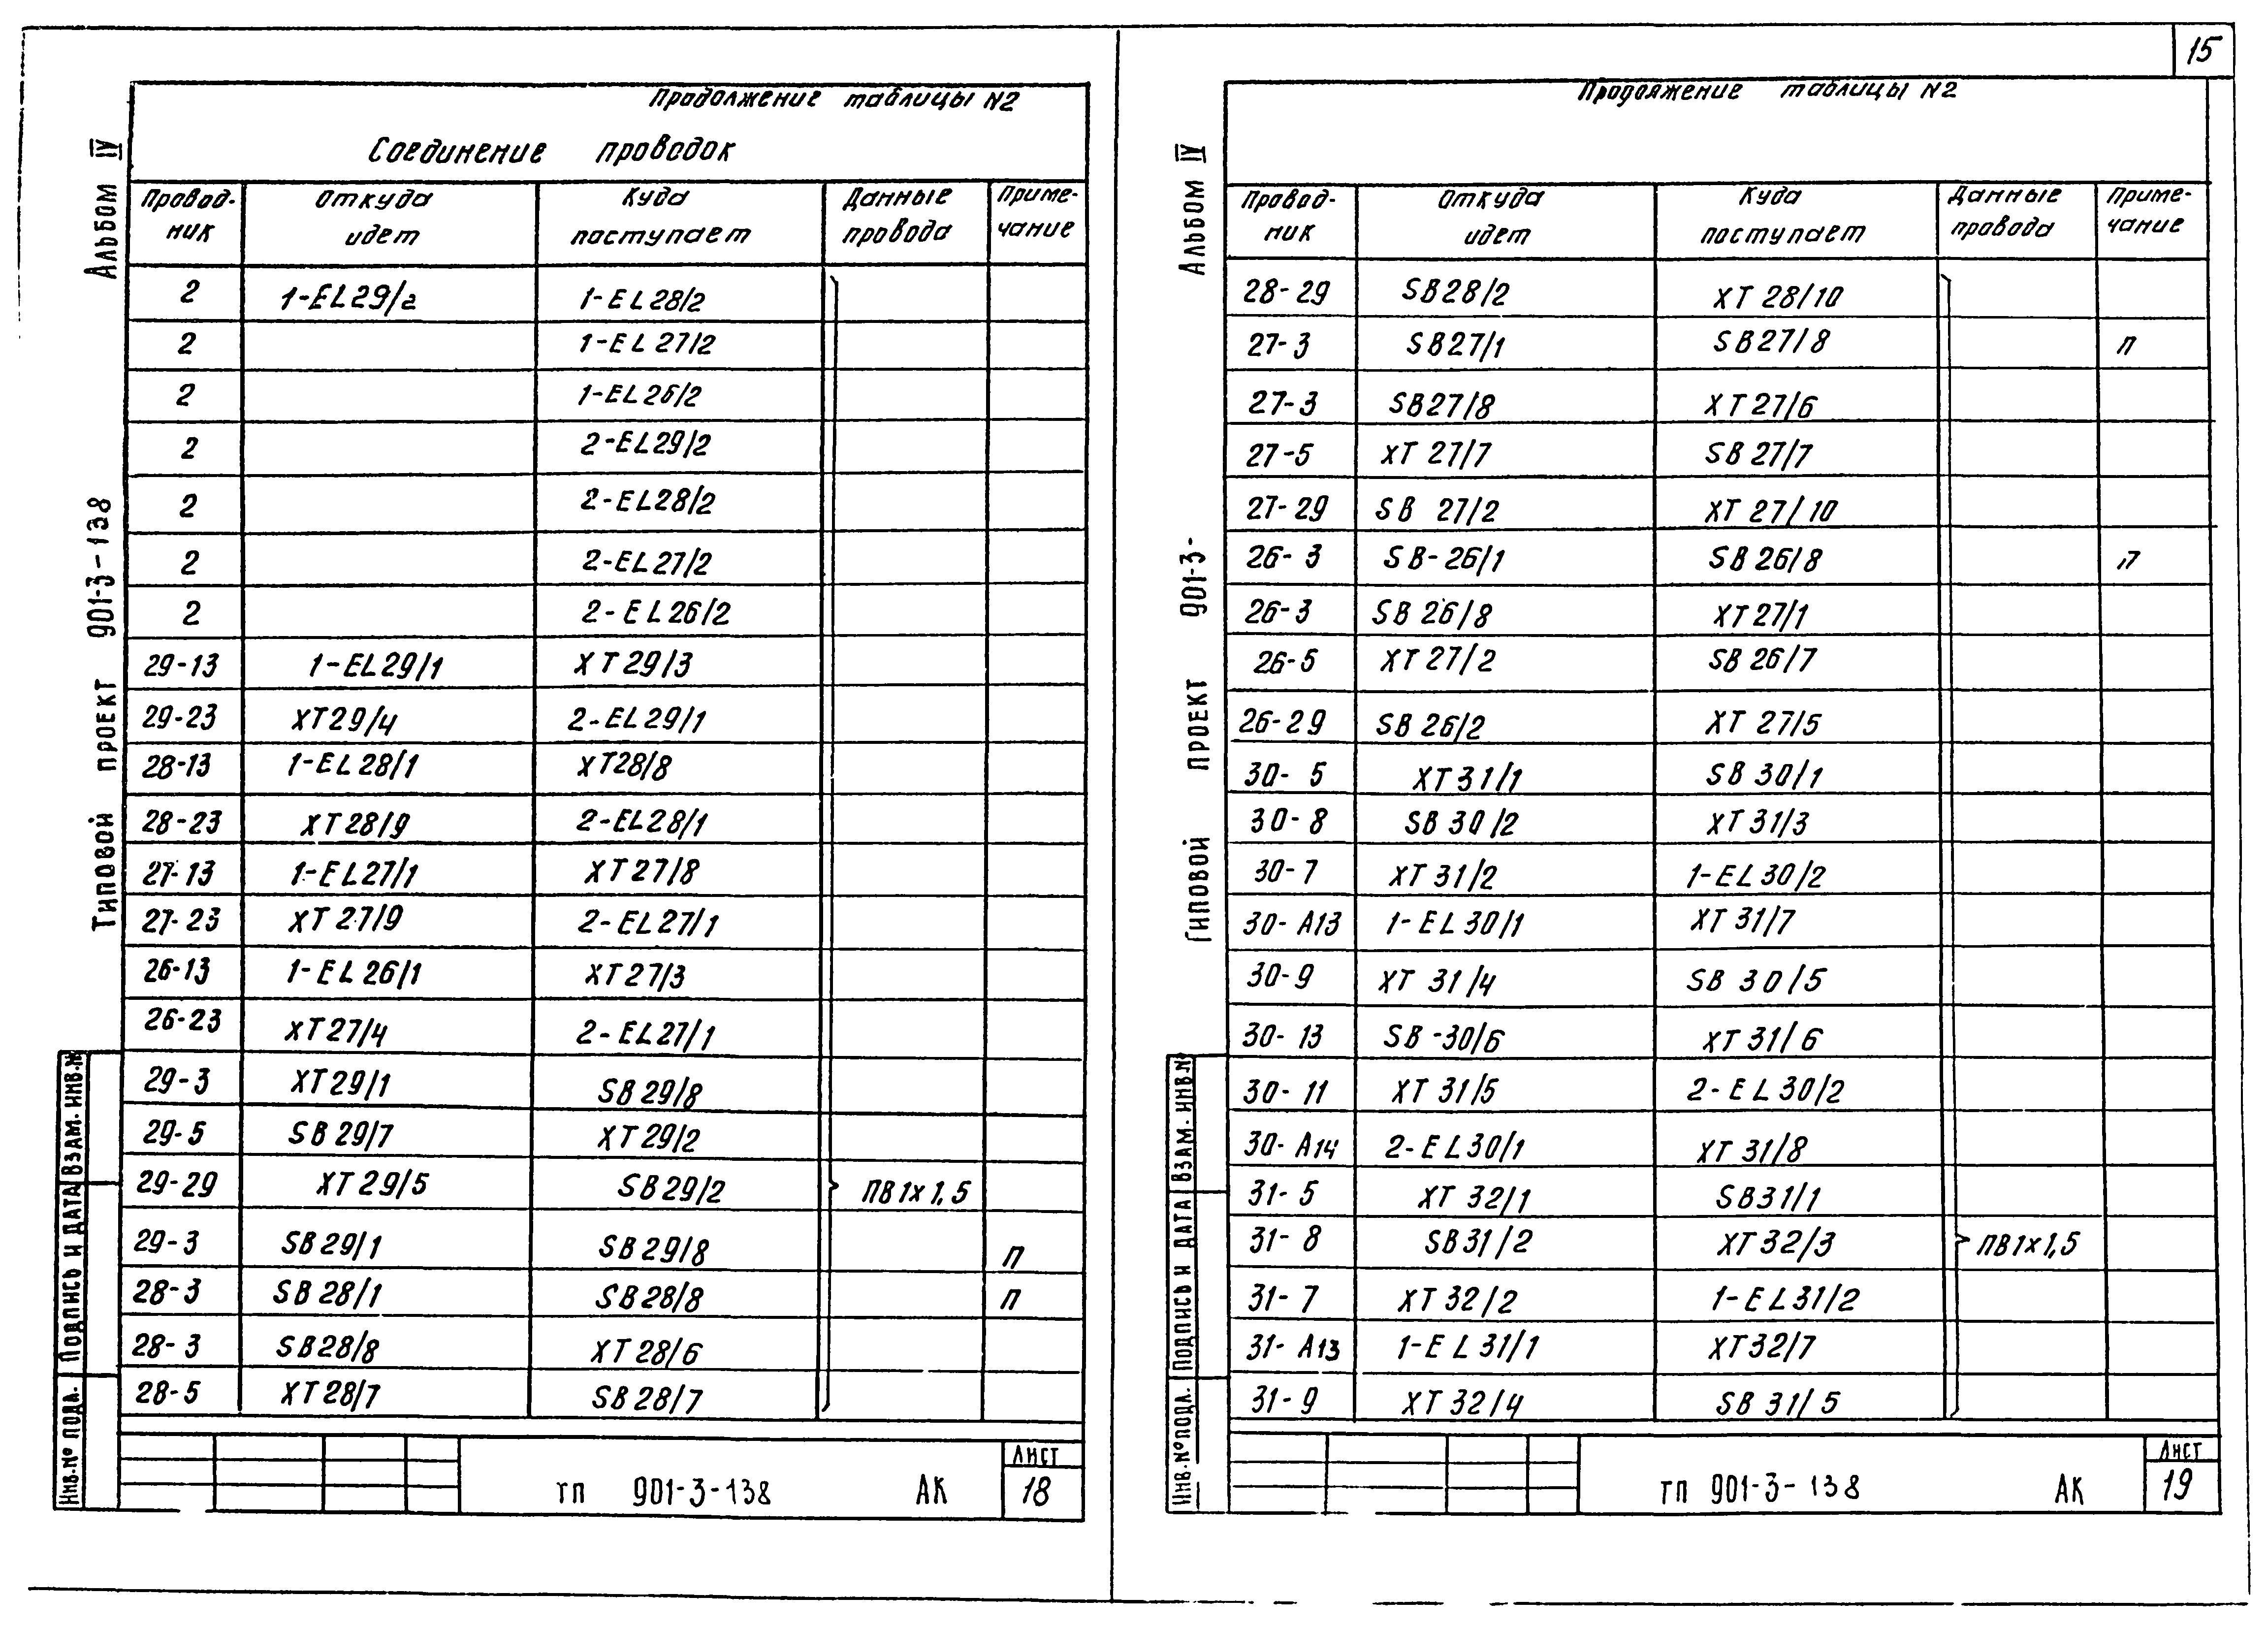 15
Продолжение таблицы N2
Соединение проводок
Провод-ник Откуда идет Куда поступает Данные провода Приме-чание
2 1-EL29/2 1-EL28/2
2 1-EL27/2
2 1-EL26/2
2 2-EL29/2
2 2-EL28/2
2 2-EL27/2
2 2-EL26/2
29-13 1-EL29/1 XT29/3
29-23 XT29/4 2-EL29/1
28-13 1-EL28/1 XT28/8
28-23 XT28/9 2-EL28/1
27-13 1-EL27/1 XT27/8
27-23 XT27/9 2-EL27/1
26-13 1-EL26/1 XT27/3
26-23 XT27/4 2-EL27/1
29-3 XT29/1 SB29/8
29-5 SB29/7 XT29/2
29-29 XT29/5 SB29/2 ПВ1х1,5
29-3 SB29/1 SB29/8 П
28-3 SB28/1 SB28/8 П
28-3 SB28/8 XT28/6
28-5 XT28/7 SB28/7
ТП 901-3-138 АК
Лист
18
Типовой проект 901-3-138 Альбом IV
Инв.№ подл. Подпись и дата Взам. инв.№
Продолжение таблицы N2
Провод-ник Откуда идет Куда поступает Данные провода Приме-чание
28-29 SB28/2 XT28/10
27-3 SB27/1 SB27/8 П
27-3 SB27/8 XT27/6
27-5 XT27/7 SB27/7
27-29 SB 27/2 XT27/10
26-3 SB-26/1 SB26/8 П
26-3 SB26/8 XT27/1
26-5 XT27/2 SB26/7
26-29 SB26/2 XT27/5
30-5 XT31/1 SB30/1
30-8 SB30/2 XT31/3
30-7 XT31/2 1-EL30/2
30-А13 1-EL30/1 XT31/7
30-9 XT31/4 SB30/5
30-13 SB-30/6 XT31/6
30-11 XT31/5 2-EL30/2
30-А14 2-EL30/1 XT31/8
31-5 XT32/1 SB31/1
31-8 SB31/2 XT32/3 ПВ1х1,5
31-7 XT32/2 1-EL31/2
31-А13 1-EL31/1 XT32/7
31-9 XT32/4 SB31/5
ТП 901-3-138 АК
Лист
19
Типовой проект 901-3- Альбом IV
Инв.№ подл. Подпись и дата Взам. инв.№